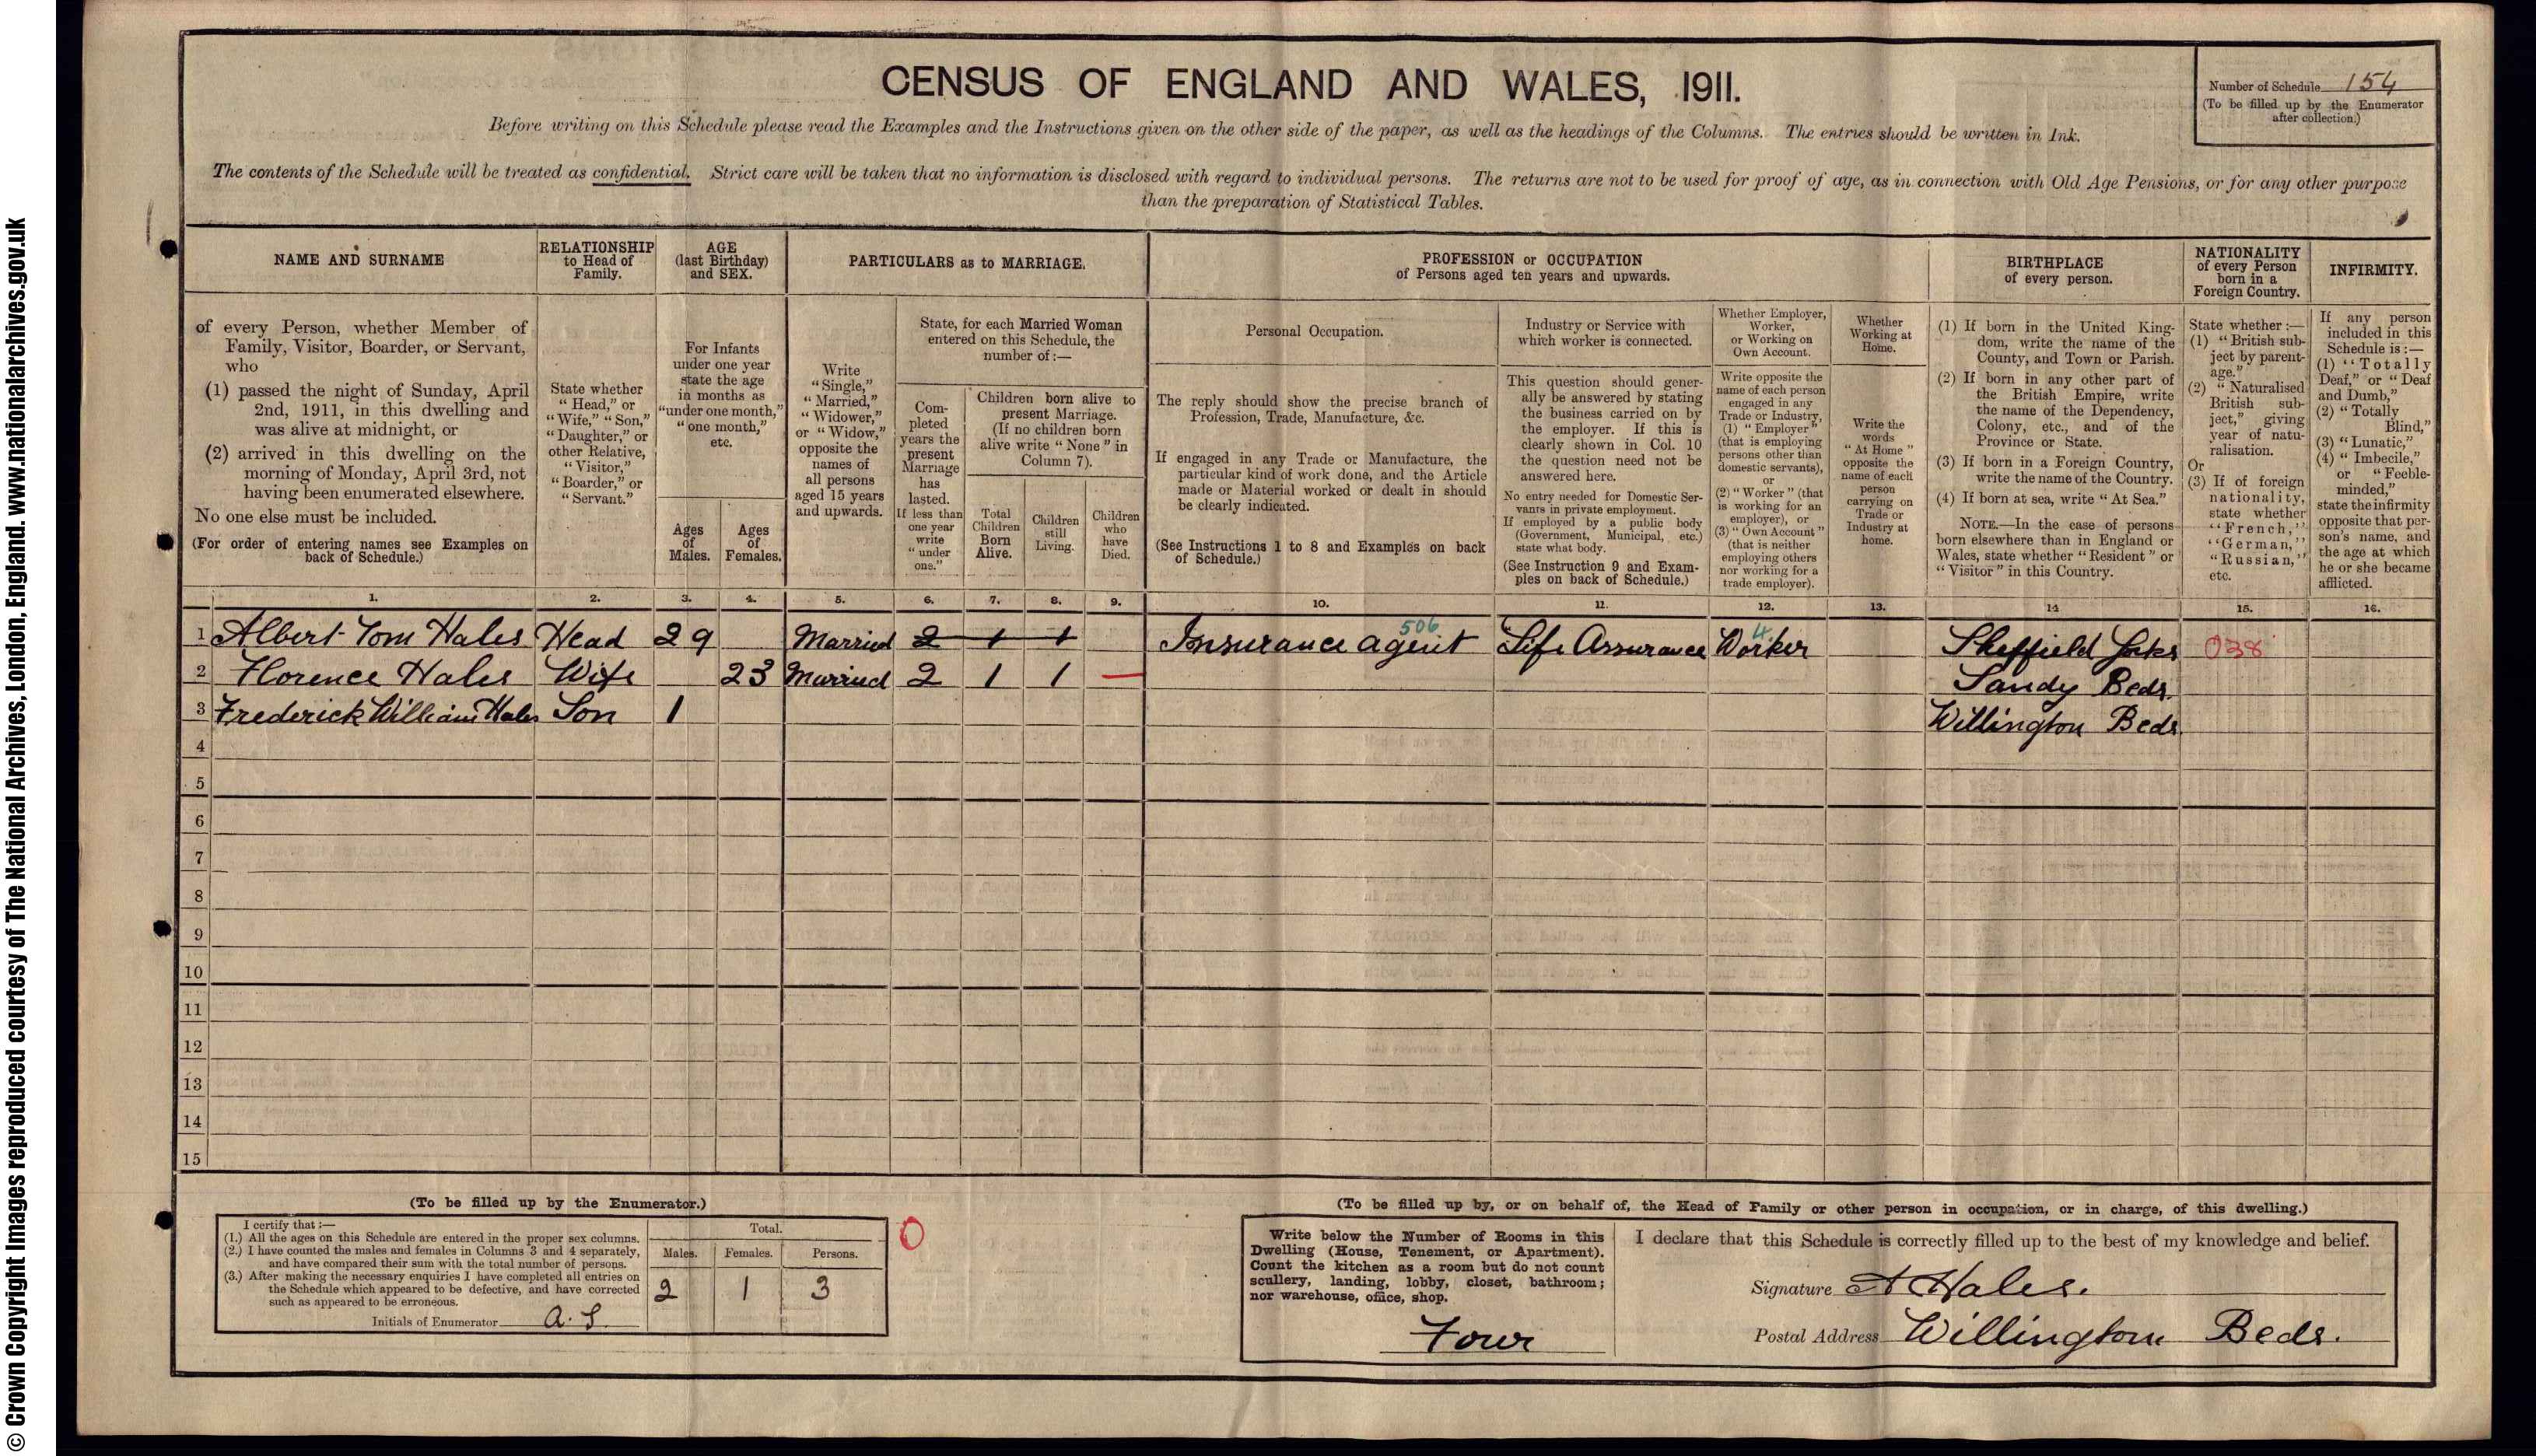 © Crown Copyright Images reproduced courtesy of The National Archives, London, England. www.nationalarchives.gov.uk
CENSUS OF ENGLAND AND WALES, 1911.
Number of Schedule 154
(To be filled up by the Enumerator
after collection.)
Before writing on this Schedule please read the Examples and the Instructions given on the other side of the paper, as well as the headings of the Columns. The entries should be written in Ink.
The contents of the Schedule will be treated as confidential. Strict care will be taken that no information is disclosed with regard to individual persons. The returns are not to be used for proof of age, as in connection with Old Age Pensions, or for any other purpose
than the preparation of Statistical Tables.
NAME AND SURNAME
of every Person, whether Member of
Family, Visitor, Boarder, or Servant,
who
(1) passed the night of Sunday, April
2nd, 1911, in this dwelling and
was alive at midnight, or
(2) arrived in this dwelling on the
morning of Monday, April 3rd, not
having been enumerated elsewhere.
No one else must be included.
(For order of entering names see Examples on
back of Schedule.)
RELATIONSHIP
to Head of
Family.
State whether
"Head," or
"Wife," "Son,"
"Daughter," or
other Relative,
"Visitor,"
"Boarder," or
"Servant."
AGE
(last Birthday)
and SEX.
For Infants
under one year
state the age
in months as
"under one month,"
"one month,"
etc.
Ages
of
Males.
Ages
of
Females.
PARTICULARS as to MARRIAGE.
Write
"Single,"
"Married,"
"Widower,"
or "Widow,"
opposite the
names of
all persons
aged 15 years
and upwards.
State, for each Married Woman
entered on this Schedule, the
number of:—
Com-
pleted
years the
present
Marriage
has
lasted.
If less than
one year
write
"under
one."
Children born alive to
present Marriage.
(If no children born
alive write "None" in
Column 7).
Total
Children
Born
Alive.
Children
still
Living.
Children
who
have
Died.
PROFESSION or OCCUPATION
of Persons aged ten years and upwards.
Personal Occupation.
The reply should show the precise branch of
Profession, Trade, Manufacture, &c.
If engaged in any Trade or Manufacture, the
particular kind of work done, and the Article
made or Material worked or dealt in should
be clearly indicated.
(See Instructions 1 to 8 and Examples on back
of Schedule.)
Industry or Service with
which worker is connected.
This question should gener-
ally be answered by stating
the business carried on by
the employer. If this is
clearly shown in Col. 10
the question need not be
answered here.
No entry needed for Domestic Ser-
vants in private employment.
If employed by a public body
(Government, Municipal, etc.)
state what body.
(See Instruction 9 and Exam-
ples on back of Schedule.)
Whether Employer,
Worker,
or Working on
Own Account.
Write opposite the
name of each person
engaged in any
Trade or Industry,
(1) "Employer"
(that is employing
persons other than
domestic servants),
or
(2) "Worker" (that
is working for an
employer), or
(3) "Own Account"
(that is neither
employing others
nor working for a
trade employer).
Whether
Working at
Home.
Write the
words
"At Home"
opposite the
name of each
person
carrying on
Trade or
Industry at
home.
BIRTHPLACE
of every person.
(1) If born in the United King-
dom, write the name of the
County, and Town or Parish.
(2) If born in any other part of
the British Empire, write
the name of the Dependency,
Colony, etc., and of the
Province or State.
(3) If born in a Foreign Country,
write the name of the Country.
(4) If born at sea, write "At Sea."
NOTE.—In the case of persons
born elsewhere than in England or
Wales, state whether "Resident" or
"Visitor" in this Country.
NATIONALITY
of every Person
born in a
Foreign Country.
State whether:—
(1) "British sub-
ject by parent-
age."
(2) "Naturalised
British sub-
ject," giving
year of natu-
ralisation.
Or
(3) If of foreign
nationality,
state whether
"French,"
"German,"
"Russian,"
etc.
INFIRMITY.
If any person
included in this
Schedule is:—
(1) "Totally
Deaf," or "Deaf
and Dumb,"
(2) "Totally
Blind,"
(3) "Lunatic,"
(4) "Imbecile,"
or "Feeble-
minded,"
state the infirmity
opposite that per-
son's name, and
the age at which
he or she became
afflicted.
1. 2. 3. 4. 5. 6. 7. 8. 9. 10. 11. 12. 13. 14 15. 16.
506 4
1 Albert Tom Hales Head 29 Married 2 1 1 Insurance agent Life Assurance Worker Sheffield Yorks 038
2 Florence Hales Wife 23 Married 2 1 1 — Sandy Beds.
3 Frederick William Hales Son 1 Willington Beds
4
5
6
7
8
9
10
11
12
13
14
15
(To be filled up by the Enumerator.)
I certify that:—
(1.) All the ages on this Schedule are entered in the proper sex columns.
(2.) I have counted the males and females in Columns 3 and 4 separately,
and have compared their sum with the total number of persons.
(3.) After making the necessary enquiries I have completed all entries on
the Schedule which appeared to be defective, and have corrected
such as appeared to be erroneous.
Initials of Enumerator A. S.
Total.
Males. Females. Persons.
2 1 3
0
(To be filled up by, or on behalf of, the Head of Family or other person in occupation, or in charge, of this dwelling.)
Write below the Number of Rooms in this
Dwelling (House, Tenement, or Apartment).
Count the kitchen as a room but do not count
scullery, landing, lobby, closet, bathroom;
nor warehouse, office, shop.
Four
I declare that this Schedule is correctly filled up to the best of my knowledge and belief.
Signature A Hales.
Postal Address Willington Beds.